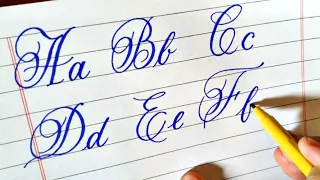 Aa Bb Cc
Dd Ee Ff